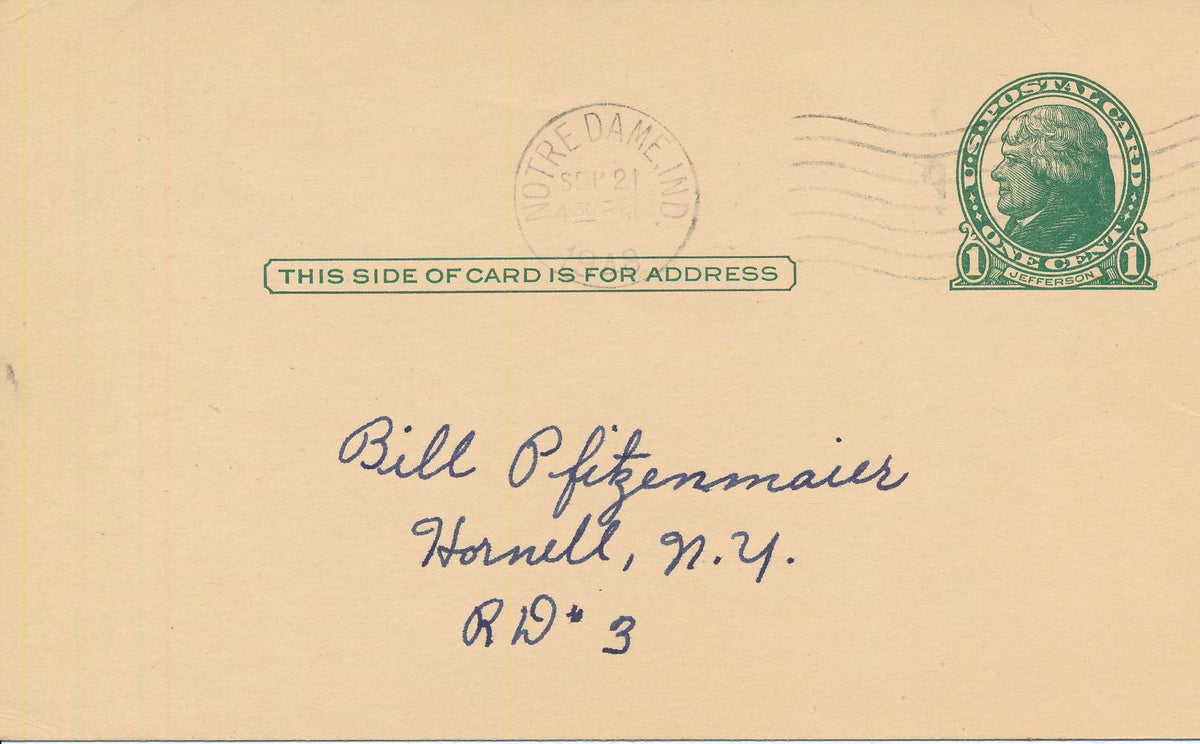 NOTRE DAME, IND.
SEP 21
4 30 PM
1948
U.S. POSTAL CARD
ONE CENT
1 JEFFERSON 1
THIS SIDE OF CARD IS FOR ADDRESS
Bill Pfitzenmaier
Hornell, N.Y.
RD # 3